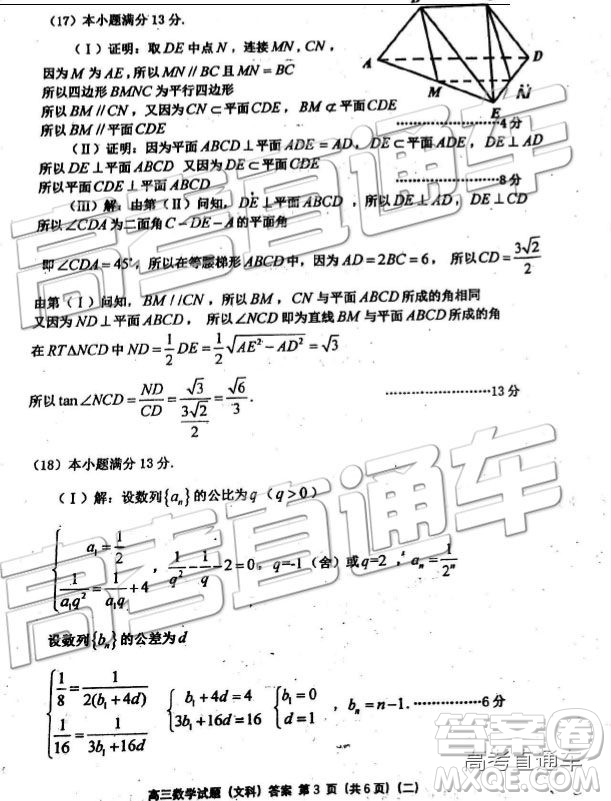 (17) 本小题满分 13 分.
(Ⅰ) 证明: 取 DE 中点 N , 连接 MN , CN ,
因为 M 为 AE , 所以 MN // BC 且 MN = BC
所以四边形 BMNC 为平行四边形
所以 BM // CN , 又因为 CN ⊂ 平面 CDE , BM ⊄ 平面 CDE
所以 BM // 平面 CDE ……………4 分
A
D
M
N
E
(Ⅱ) 证明: 因为平面 ABCD ⊥ 平面 ADE = AD, DE ⊂ 平面 ADE , DE ⊥ AD
所以 DE ⊥ 平面 ABCD 又因为 DE ⊂ 平面 CDE
所以平面 CDE ⊥ 平面 ABCD ……………8 分
(Ⅲ) 解: 由第 (Ⅱ) 问知, DE ⊥ 平面 ABCD , 所以 DE ⊥ AD, DE ⊥ CD
所以 ∠CDA 为二面角 C − DE − A 的平面角
即 ∠CDA = 45°, 所以在等腰梯形 ABCD 中, 因为 AD = 2BC = 6 , 所以 CD = 3√2/2
由第 (Ⅰ) 问知, BM // CN , 所以 BM , CN 与平面 ABCD 所成的角相同
又因为 ND ⊥ 平面 ABCD , 所以 ∠NCD 即为直线 BM 与平面 ABCD 所成的角
在 RTΔNCD 中 ND = 1/2 DE = 1/2 √(AE² − AD²) = √3
所以 tan∠NCD = ND/CD = √3/(3√2/2) = √6/3 . ……………13 分
(18) 本小题满分 13 分.
(Ⅰ) 解: 设数列{aₙ} 的公比为 q ( q > 0 )
{ a₁ = 1/2
1/(a₁q²) = 1/(a₁q) + 4 , 1/q² − 1/q − 2 = 0 , q=-1 (舍) 或 q=2 , aₙ = 1/2ⁿ
设数列{bₙ} 的公差为 d
{ 1/8 = 1/(2(b₁ + 4d)) { b₁ + 4d = 4 { b₁ = 0
1/16 = 1/(3b₁ + 16d) 3b₁ + 16d = 16 d = 1 , bₙ = n − 1. ……………6 分
高三数学试题 (文科) 答案 第 3 页 (共 6 页) (二)
高考直通车
高考直通车
答案圈
高考直通车